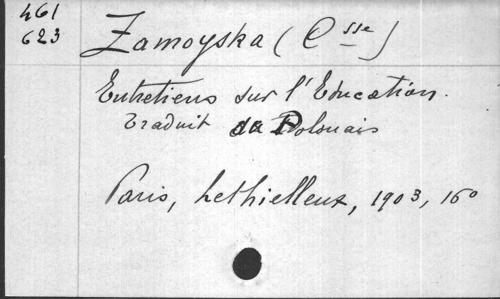 461
623
Zamoyska (Csse)
Entretiens sur l'Education.
Traduit du Polonais
Paris, Lethielleux, 1903, 16o